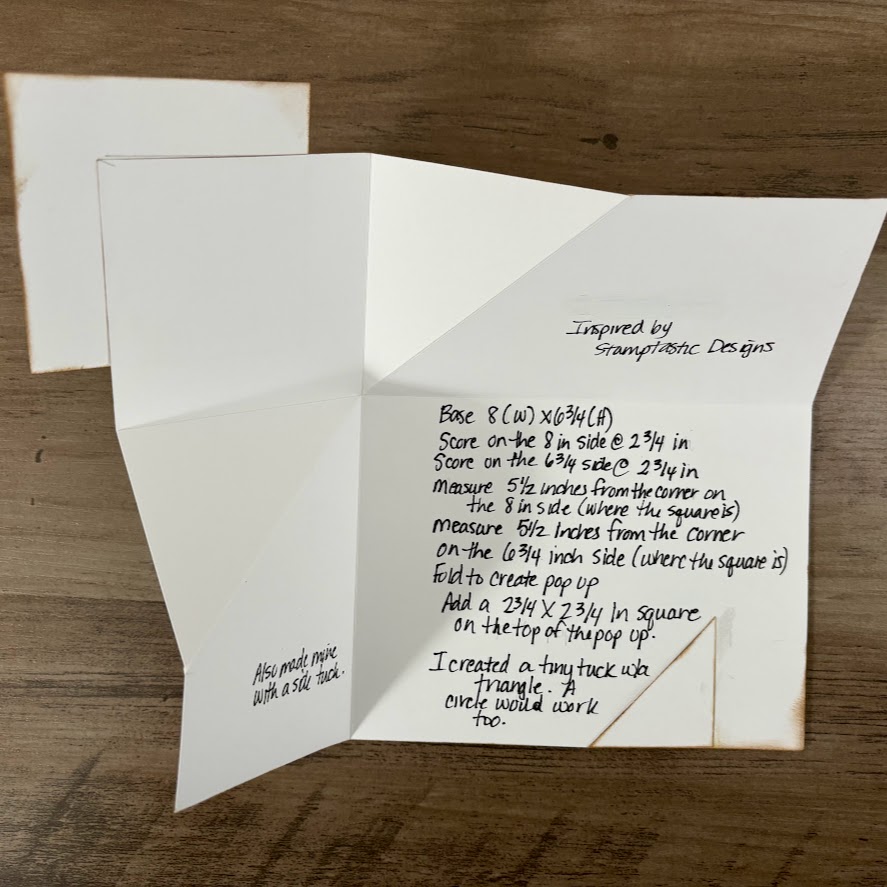 Inspired by
Stamptastic Designs
Base 8 (W) X 6 3/4 (H)
Score on the 8 in side @ 2 3/4 in
Score on the 6 3/4 side @ 2 3/4 in
Measure 5 1/2 inches from the corner on
the 8 in side (where the square is)
Measure 5 1/2 inches from the corner
on the 6 3/4 inch side (where the square is)
Fold to create pop up
Add a 2 3/4 X 2 3/4 in square
on the top of the pop up.
I created a tiny tuck w/a
triangle. A
circle would work
too.
Also made mine
with a side tuck.